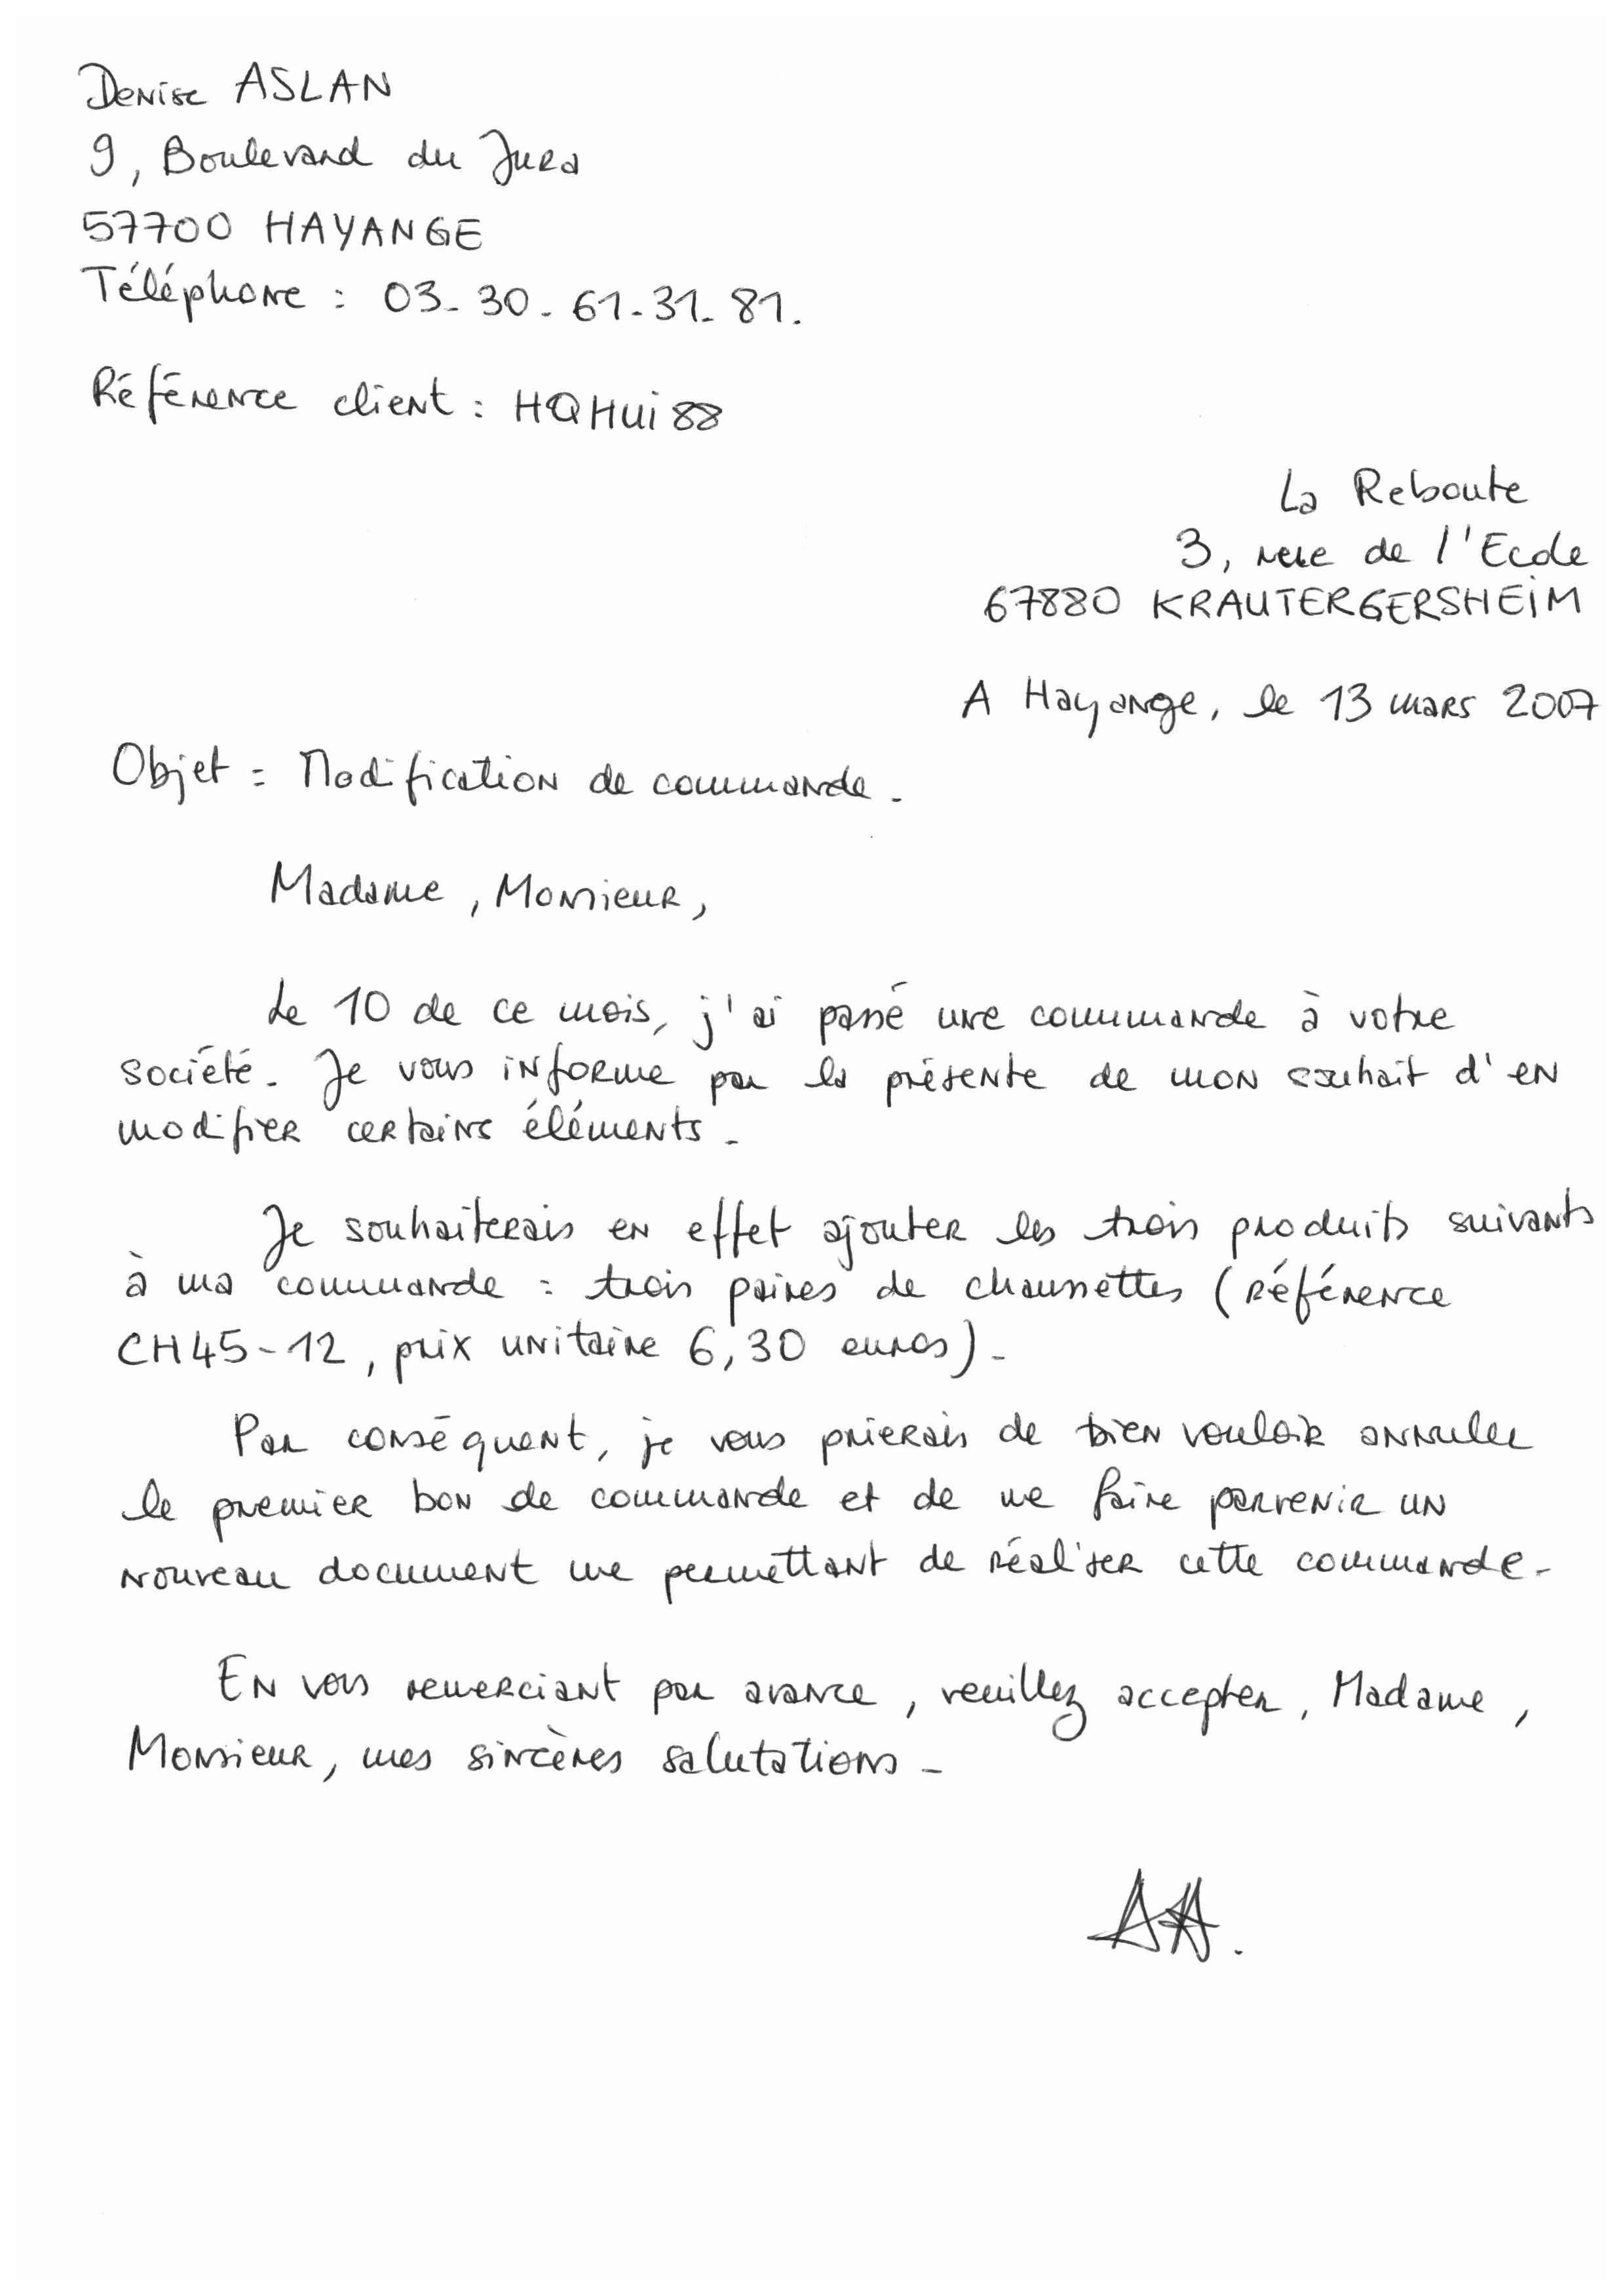 Denise ASLAN
9, Boulevard du Jura
57700 HAYANGE
Téléphone : 03-30-61-31-81.
Référence client : HQHUi88
La Reboute
3, rue de l'Ecole
67880 KRAUTERGERSHEIM
A Hayange, le 13 mars 2007
Objet : Modification de commande.
Madame, Monsieur,
Le 10 de ce mois, j'ai passé une commande à votre
société. Je vous informe par la présente de mon souhait d'en
modifier certains éléments.
Je souhaiterais en effet ajouter les trois produits suivants
à ma commande : trois paires de chaussettes (référence
CH45-12, prix unitaire 6,30 euros).
Par conséquent, je vous prierais de bien vouloir annuler
le premier bon de commande et de me faire parvenir un
nouveau document me permettant de réaliser cette commande.
En vous remerciant par avance, veuillez accepter, Madame,
Monsieur, mes sincères salutations.